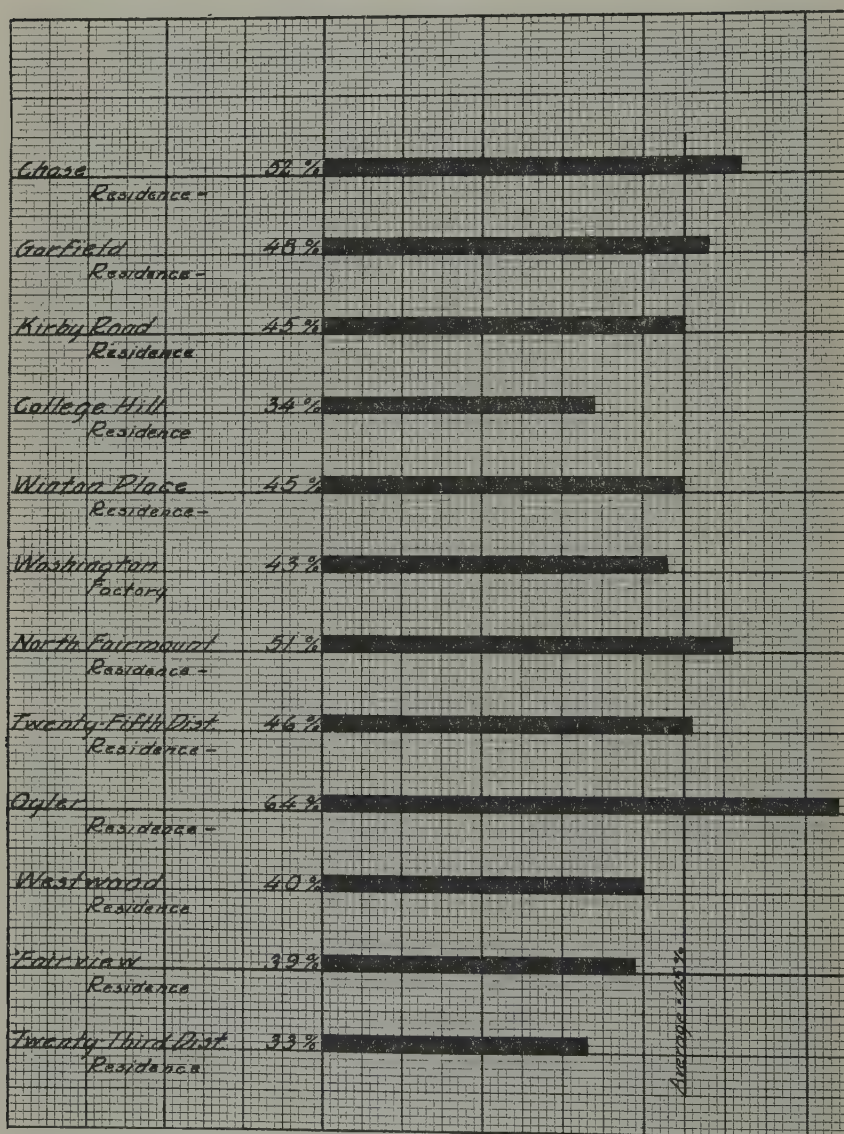 Chase 52%
Residence -
Garfield 48%
Residence -
Kirby Road 45%
Residence
College Hill 34%
Residence
Winton Place 45%
Residence -
Washington 43%
Factory
North Fairmount 51%
Residence -
Twenty-Fifth Dist. 46%
Residence -
Oyler 64%
Residence -
Westwood 40%
Residence
Fairview 39%
Residence
Twenty Third Dist. 33%
Residence
Average - 45%